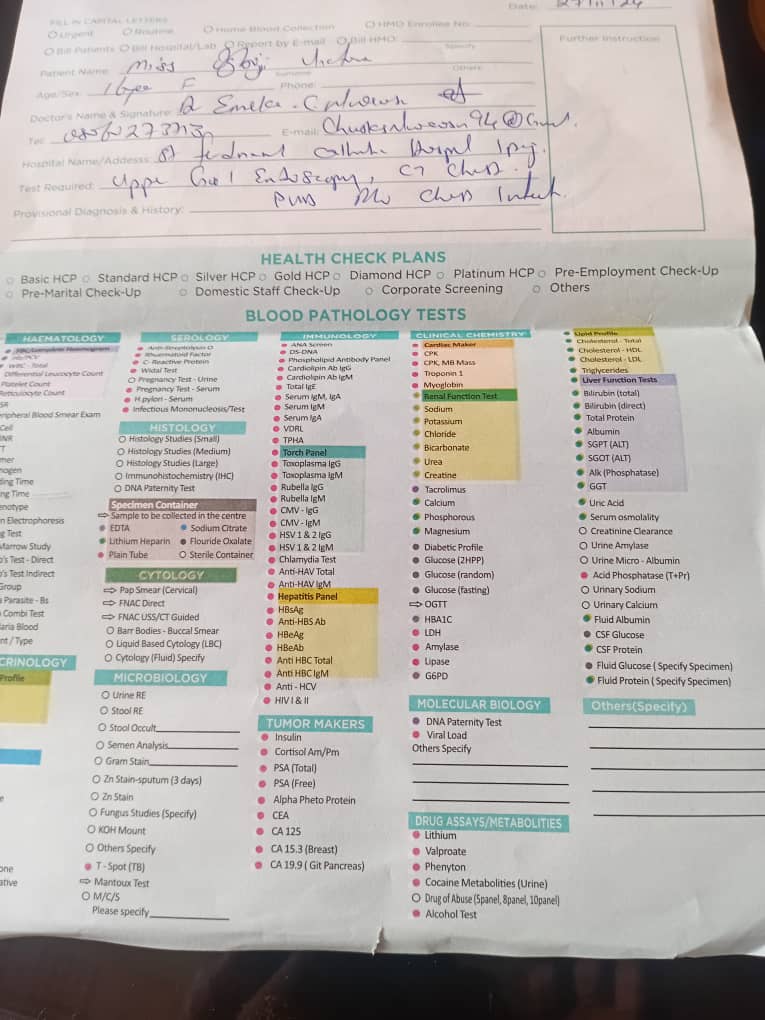 Date: 27/11/24
FILL IN CAPITAL LETTERS
Urgent Routine Home Blood Collection HMO Enrollee No:
Bill Patients Bill Hospital/Lab Report by E-mail Bill HMO:
Specify
Further Instruction
Patient Name: Miss
Surname Others
Age/Sex: F Phone:
Doctor's Name & Signature: Dr Emeka
Tel: E-mail:
Hospital Name/Address: St
Test Required: Upper Endoscopy, CT Chest.
Provisional Diagnosis & History:
HEALTH CHECK PLANS
Basic HCP Standard HCP Silver HCP Gold HCP Diamond HCP Platinum HCP Pre-Employment Check-Up
Pre-Marital Check-Up Domestic Staff Check-Up Corporate Screening Others
BLOOD PATHOLOGY TESTS
HAEMATOLOGY
FBC/Complete Haemogram
Hb/PCV
WBC - Total
Differential Leucocyte Count
Platelet Count
Reticulocyte Count
SR
ripheral Blood Smear Exam
Cell
INR
T
mer
nogen
ding Time
ng Time
enotype
n Electrophoresis
g Test
Marrow Study
o's Test - Direct
o's Test Indirect
Group
Parasite - Bs
Combi Test
laria Blood
nt / Type
CRINOLOGY
Profile
e
one
ative
SEROLOGY
Anti-Streptolysin O
Rheumatoid Factor
C- Reactive Protein
Widal Test
Pregnancy Test - Urine
Pregnancy Test - Serum
H.pylori - Serum
Infectious Mononucleosis/Test
HISTOLOGY
Histology Studies (Small)
Histology Studies (Medium)
Histology Studies (Large)
Immunohistochemistry (IHC)
DNA Paternity Test
Specimen Container
Sample to be collected in the centre
EDTA Sodium Citrate
Lithium Heparin Flouride Oxalate
Plain Tube Sterile Container
CYTOLOGY
Pap Smear (Cervical)
FNAC Direct
FNAC USS/CT Guided
Barr Bodies - Buccal Smear
Liquid Based Cytology (LBC)
Cytology (Fluid) Specify
MICROBIOLOGY
Urine RE
Stool RE
Stool Occult
Semen Analysis
Gram Stain
Zn Stain-sputum (3 days)
Zn Stain
Fungus Studies (Specify)
KOH Mount
Others Specify
T - Spot (TB)
Mantoux Test
M/C/S
Please specify
IMMUNOLOGY
ANA Screen
DS-DNA
Phospholipid Antibody Panel
Cardiolipin Ab IgG
Cardiolipin Ab IgM
Total IgE
Serum IgM, IgA
Serum IgM
Serum IgA
VDRL
TPHA
Torch Panel
Toxoplasma IgG
Toxoplasma IgM
Rubella IgG
Rubella IgM
CMV - IgG
CMV - IgM
HSV 1 & 2 IgG
HSV 1 & 2 IgM
Chlamydia Test
Anti-HAV Total
Anti-HAV IgM
Hepatitis Panel
HBsAg
Anti-HBS Ab
HBeAg
HBeAb
Anti HBC Total
Anti HBC IgM
Anti - HCV
HIV I & II
TUMOR MAKERS
Insulin
Cortisol Am/Pm
PSA (Total)
PSA (Free)
Alpha Pheto Protein
CEA
CA 125
CA 15.3 (Breast)
CA 19.9 ( Git Pancreas)
CLINICAL CHEMISTRY
Cardiac Maker
CPK
CPK, MB Mass
Troponin 1
Myoglobin
Renal Function Test
Sodium
Potassium
Chloride
Bicarbonate
Urea
Creatine
Tacrolimus
Calcium
Phosphorous
Magnesium
Diabetic Profile
Glucose (2HPP)
Glucose (random)
Glucose (fasting)
OGTT
HBA1C
LDH
Amylase
Lipase
G6PD
MOLECULAR BIOLOGY
DNA Paternity Test
Viral Load
Others Specify
DRUG ASSAYS/METABOLITIES
Lithium
Valproate
Phenyton
Cocaine Metabolities (Urine)
Drug of Abuse (5panel, 8panel, 10panel)
Alcohol Test
Lipid Profile
Cholesterol - Total
Cholesterol - HDL
Cholesterol - LDL
Triglycerides
Liver Function Tests
Bilirubin (total)
Bilirubin (direct)
Total Protein
Albumin
SGPT (ALT)
SGOT (ALT)
Alk (Phosphatase)
GGT
Uric Acid
Serum osmolality
Creatinine Clearance
Urine Amylase
Urine Micro - Albumin
Acid Phosphatase (T+Pr)
Urinary Sodium
Urinary Calcium
Fluid Albumin
CSF Glucose
CSF Protein
Fluid Glucose ( Specify Specimen)
Fluid Protein ( Specify Specimen)
Others(Specify)